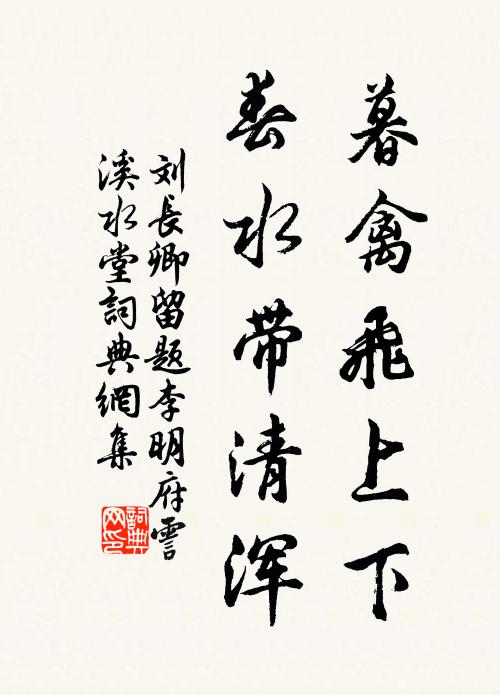 暮禽飛上下
春水带清浑
刘長卿留题李明府霅
溪水堂詞典網集
詞典
网印